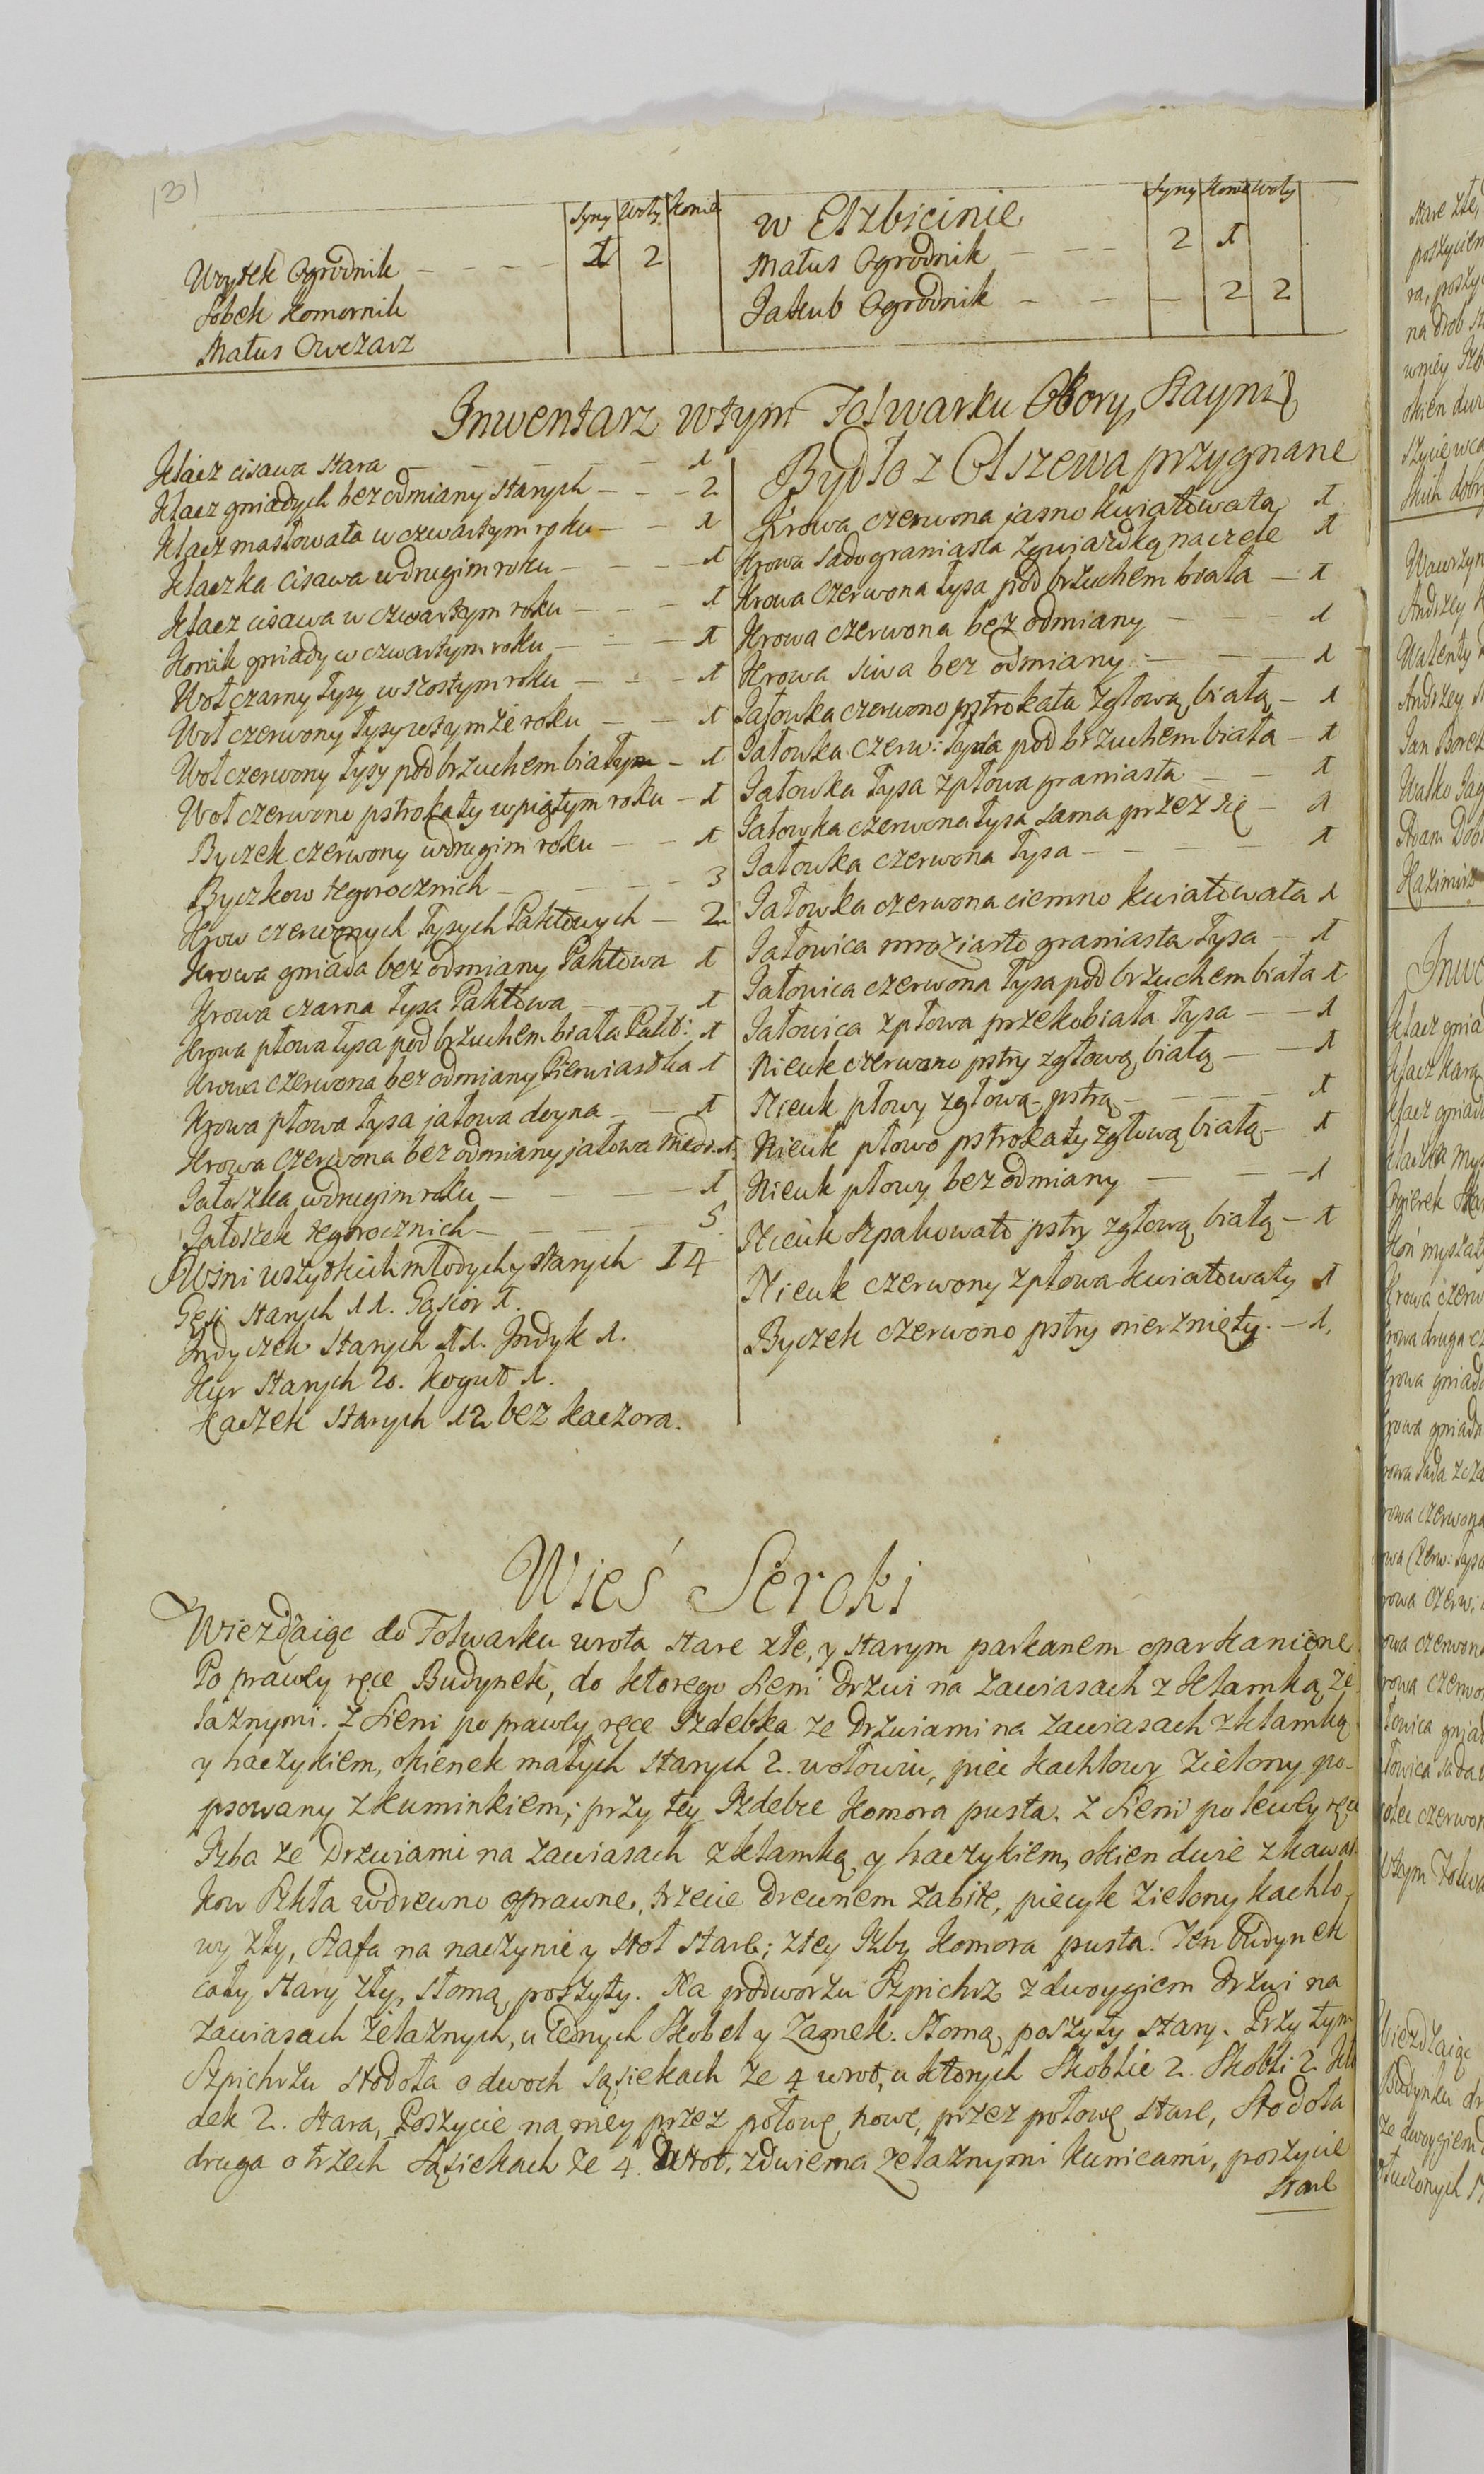 131
Syny Woły Konie
Woytek Ogrodnik - - - - 1 2
Sobek Komornik
Matus Owczarz
w Elzbicinie
Syny Konie Woły
Matus Ogrodnik - - 2 1
Jakub Ogrodnik - - - 2 2
Inwentarz w tym Folwarku Obory, Staynię
Klacz cisawa stara - - - - - 1
Klacz gniadych bez odmiany starych - - - 2
Klacz masłowata w czwartym roku - - 1
Klaczka cisawa w drugim roku - - - - 1
Klacz cisawa w czwartym roku - - - 1
Konik gniady w czwartym roku - - - 1
Woł czarny łysy w szostym roku - - - 1
Woł czerwony łysy w tymże roku - - 1
Woł czerwony łysy pod brzuchem białym - 1
Woł czerwono pstrokaty w piątym roku - 1
Byczek czerwony w drugim roku - - 1
Byczkow tegorocznich - - - - - 3
Krow czerwonych łysych Paktowych - 2
Krowa gniada bez odmiany Paktowa 1
Krowa czarna łysa Paktowa - - - 1
Krowa płowa łysa pod brzuchem biała Pakt: 1
Krowa czerwona bez odmiany Pierwiastka 1
Krowa płowa łysa jałowa doyna - - 1
Krowa czerwona bez odmiany jałowa niedo. 1.
Jałoszka w drugim roku - - - - - 1
Jałoszek tegorocznich - - - - - 5
Swini wszystkich młodych y starych 14
Gęsi starych 11. Gąsior 1.
Indyczek starych 11. Indyk 1.
Kur starych 20. Kogut 1.
Kaczek starych 12 bez kaczora.
Bydło z Olszewa przygnane
Krowa czerwona jasno kwiatowata 1
Krowa sadograniasta z gwiazdką na czele 1
Krowa czerwona łysa pod brzuchem biała - 1
Krowa czerwona bez odmiany - - - 1
Krowa siwa bez odmiany - - - 1
Jałowka czerwono pstrokata z głową białą - 1
Jałowka czerw: łysa pod brzuchem biała - 1
Jałowka łysa z płowa graniasta - - 1
Jałowka czerwona łysa sama przez się - 1
Jałowka czerwona łysa - - - - 1
Jałowka czerwona ciemno kwiatowata 1
Jałowica mroziasto graniasta łysa - 1
Jałowica czerwona łysa pod brzuchem biała 1
Jałowica z płowa przekobiała łysa - - 1
Nieuk czerwono pstry z głową białą - - 1
Nieuk płowy z głową pstrą - - - - 1
Nieuk płowo pstrokaty z głową białą - 1
Nieuk płowy bez odmiany - - - 1
Nieuk szpakowato pstry z głową białą - 1
Nieuk czerwony z płowa kwiatowaty 1
Byczek czerwono pstry nierznięty. - 1.
Wieś Seroki
Wieżdzaiąc do Folwarku wrota stare złe, y starym parkanem oparkanione
Po prawey ręce Budynek, do ktorego Sieni Drzwi na zawiasach z klamką że
laznymi. Z Sieni po prawey ręce Izdebka ze Drzwiami na zawiasach z klamką
y haczykiem, okienek małych starych 2. w ołowiu, piec kachlowy zielony po-
psowany z kuminkiem; przy tey Izdebce Komora pusta. Z Sieni po lewey ręce
Izba ze Drzwiami na zawiasach z klamką y haczykiem, okien dwie z kawał
kow szkła w drewno oprawne, trzecie drewnem zabite, piecyk zielony kachlo,
wy zły, szafa na naczynie y stoł stare; z tey Izby Komora pusta. Ten Budynek
cały stary zły, słomą poszyty. Na podworzu Szpichrz z dwoygiem drzwi na
zawiasach żelaznych, u iednych Skobel y Zamek. Słomą poszyty stary. Przy tym
Szpichrzu stodoła o dwoch sąsiekach ze 4 wrot, u ktorych Skoblic 2. Skobli 2. Kło
dek 2. stara, Poszycie na niey przez połowę nowe, przez połowę stare, Stodoła
druga o trzech sąsiekach ze 4. Wrot, z dwiema żelaznymi kunicami, poszycie
stare